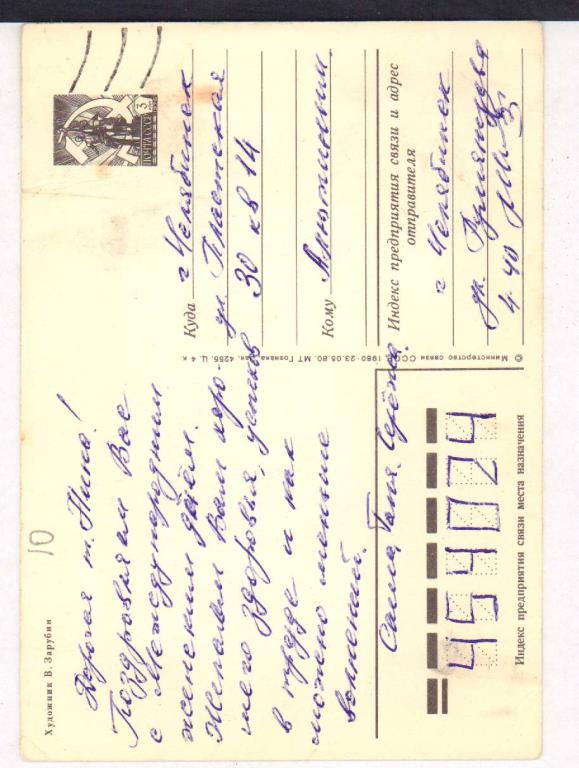 Художник В. Зарубин
10
Дорогая т. Нина!
Поздравляем Вас
с Международным
женским днём.
Желаем Вам хоро-
шего здоровья, успехов
в труде и как
можно меньше
волнений.
Саша, Таня, Серёжа.
454074
Индекс предприятия связи места назначения
© Министерство связи СССР. 1980 - 23.05.80. МТ Гознака. Зак. 4255. Ц. 4 к.
3
ПОЧТА СССР
Куда г. Челябинск
ул.
30 кв 14
Кому
Индекс предприятия связи и адрес
отправителя
г. Челябинск
ул. Румянцева
4-40